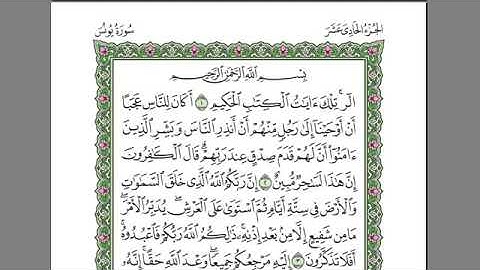 الجزء الحادي عشر
سورة يونس
بِسْمِ ٱللَّهِ ٱلرَّحْمَٰنِ ٱلرَّحِيمِ
الٓر ۚ تِلْكَ ءَايَٰتُ ٱلْكِتَٰبِ ٱلْحَكِيمِ ١ أَكَانَ لِلنَّاسِ عَجَبًا
أَنْ أَوْحَيْنَآ إِلَىٰ رَجُلٍ مِّنْهُمْ أَنْ أَنذِرِ ٱلنَّاسَ وَبَشِّرِ ٱلَّذِينَ
ءَامَنُوٓا۟ أَنَّ لَهُمْ قَدَمَ صِدْقٍ عِندَ رَبِّهِمْ ۗ قَالَ ٱلْكَٰفِرُونَ
إِنَّ هَٰذَا لَسَٰحِرٌ مُّبِينٌ ٢ إِنَّ رَبَّكُمُ ٱللَّهُ ٱلَّذِى خَلَقَ ٱلسَّمَٰوَٰتِ
وَٱلْأَرْضَ فِى سِتَّةِ أَيَّامٍ ثُمَّ ٱسْتَوَىٰ عَلَى ٱلْعَرْشِ ۖ يُدَبِّرُ ٱلْأَمْرَ ۖ
مَا مِن شَفِيعٍ إِلَّا مِنۢ بَعْدِ إِذْنِهِۦ ۚ ذَٰلِكُمُ ٱللَّهُ رَبُّكُمْ فَٱعْبُدُوهُ ۚ
أَفَلَا تَذَكَّرُونَ ٣ إِلَيْهِ مَرْجِعُكُمْ جَمِيعًا ۖ وَعْدَ ٱللَّهِ حَقًّا ۚ إِنَّهُۥ